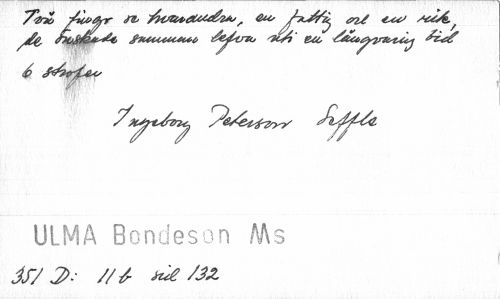 Två finge se hvarandra, en fattig och en rik,
de önskade samman lefva uti en långvarig tid
6 strofer
Ingeborg Peterson Seffle
ULMA Bondeson Ms
351 D: 11 b sid 132